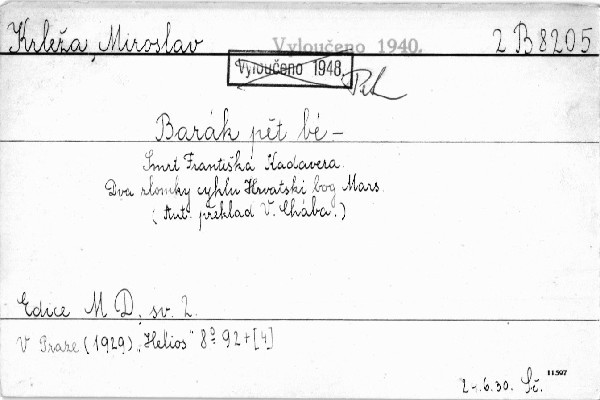 Krleža, Miroslav Vyloučeno 1940. 2 B 8205
Vyloučeno 1948
Barák pět bé —
Smrt Františka Kadavera.
Dva zlomky cyklu Hrvatski bog Mars.
(Aut. překlad V. Chába.)
Edice M D, sv. 2.
V Praze (1929) „Helios" 8° 92+[4]
11597
2-.6.30. Sč.